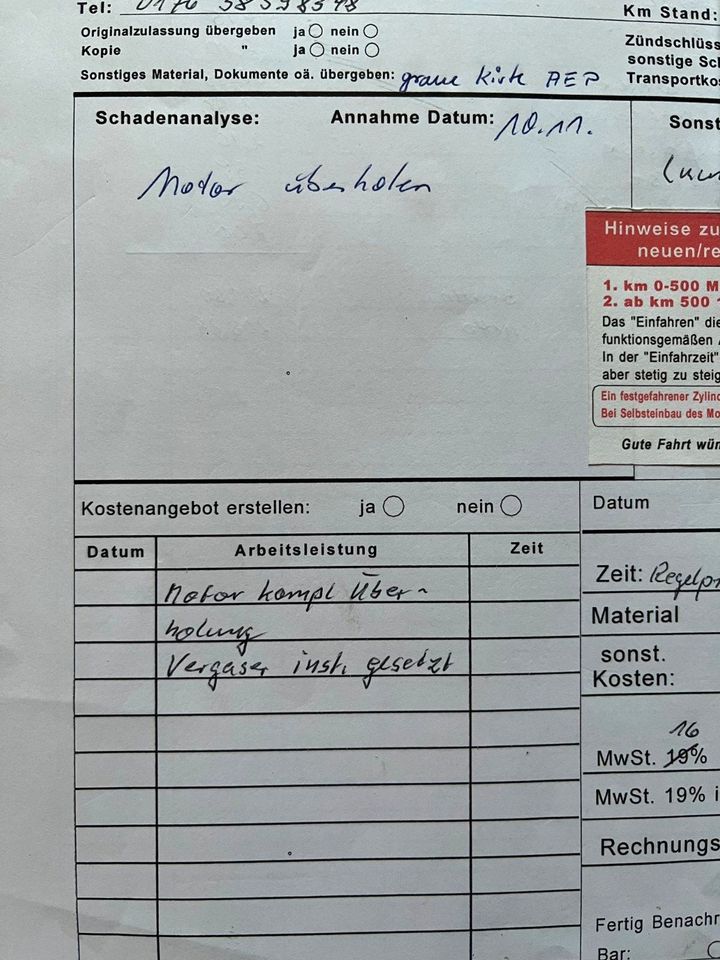 Tel:
Km Stand:
Originalzulassung übergeben ja nein
Kopie " ja nein
Zündschlüss
sonstige Sch
Transportko
Sonstiges Material, Dokumente oä. übergeben: graue Kiste AEP
Schadenanalyse: Annahme Datum: 10.11.
Sonst
Motor überholen
Hinweise zu
neuen/re
1. km 0-500 M
2. ab km 500
Das "Einfahren" die
funktionsgemäßen
In der "Einfahrzeit"
aber stetig zu steig
Ein festgefahrener Zylind
Bei Selbsteinbau des Mo
Gute Fahrt wün
Kostenangebot erstellen: ja nein
Datum
Datum Arbeitsleistung Zeit
Motor kompl Über-
holung
Vergaser inst. gesetzt
Zeit: Regelpr
Material
sonst.
Kosten:
16
MwSt. 19%
MwSt. 19% i
Rechnungs
Fertig Benachr
Bar: